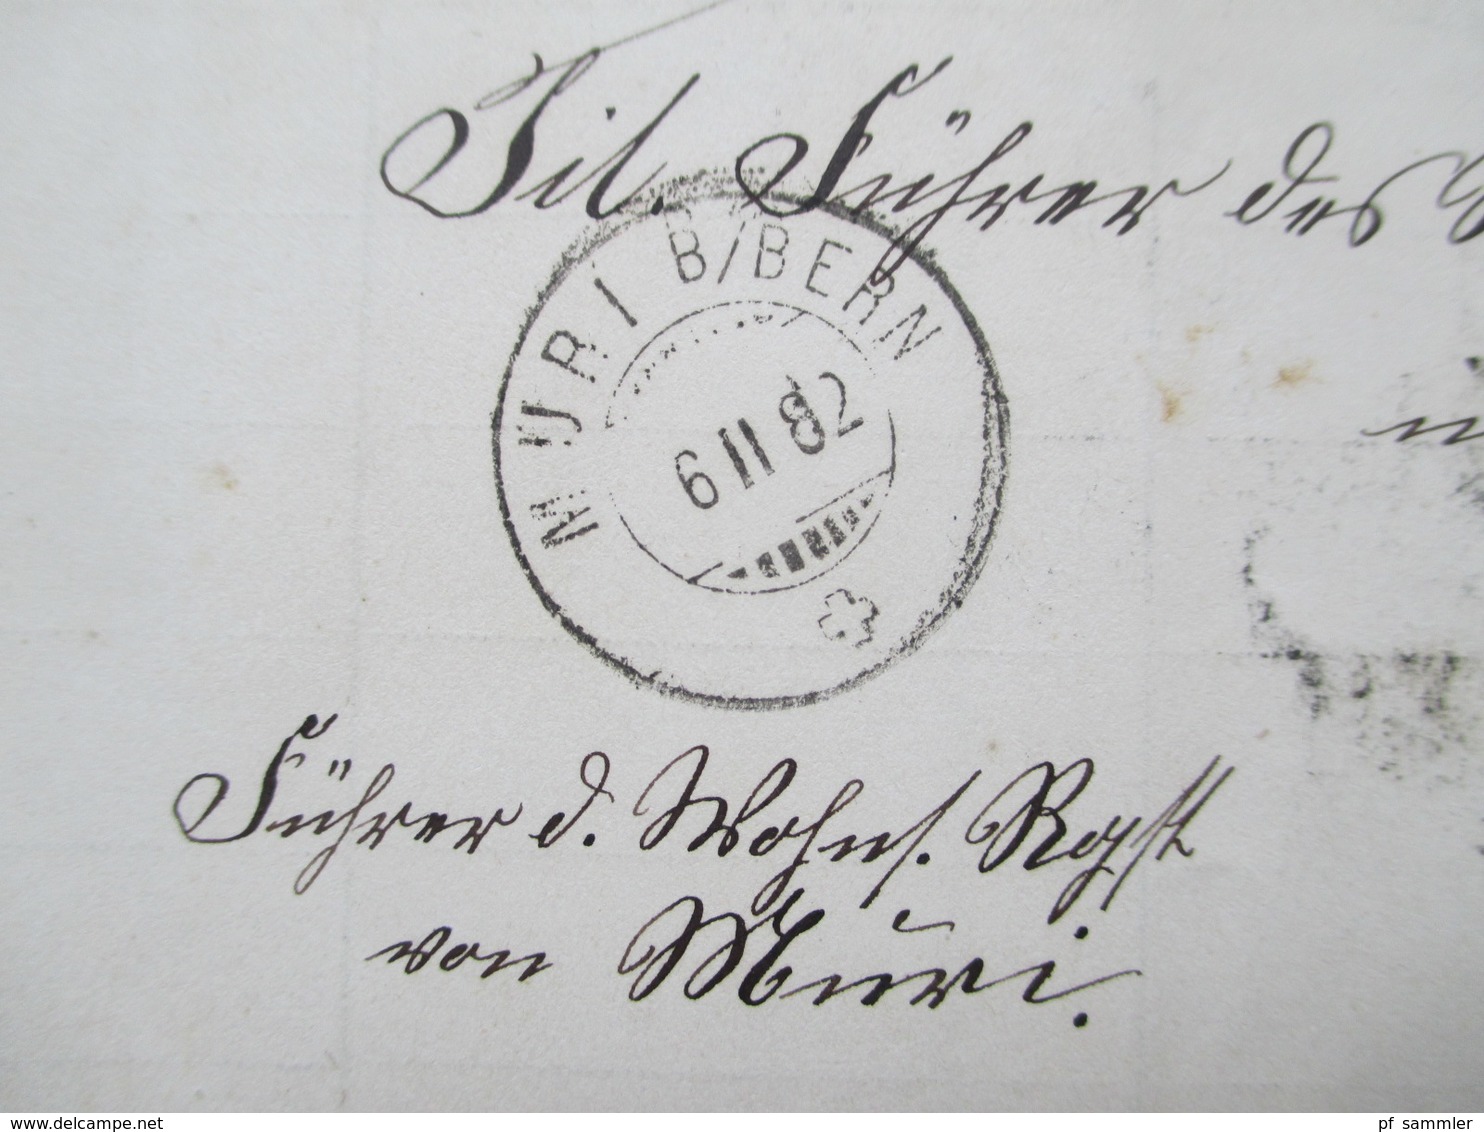 Tit. Führer des
MURI B/BERN
6 II 82
Führer d. Wohns. Rgst
von Muri.
delcampe.net
pf_sammler